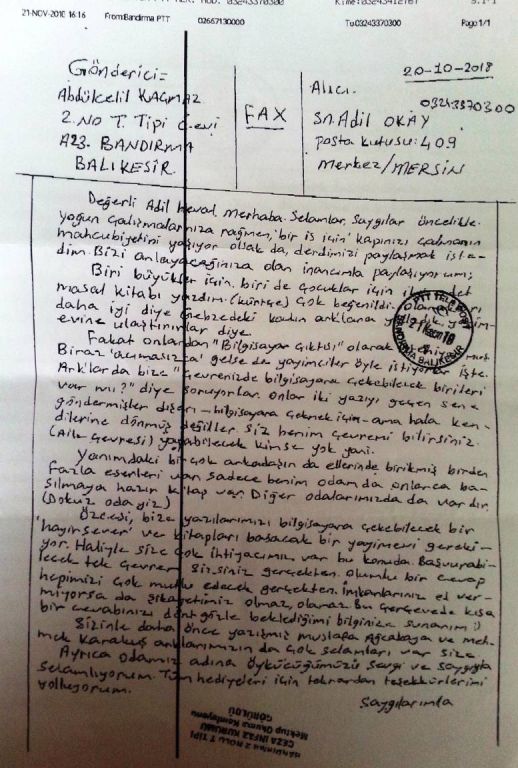 21-NOV-2018 16:16 From:Bandirma PTT 02667130000 To:03243370300 Page:1/1
Gönderici:
Abdülcelil KAÇMAZ
2. No T. Tipi C.evi
A23. BANDIRMA
BALIKESİR
FAX
20-10-2018
Alıcı.
03243370300
Sn. Adil OKAY
Posta kutusu: 409
Merkez/MERSİN
Değerli Adil Heval Merhaba. Selamlar, Saygılar öncelikle.
yoğun çalışmalarınıza rağmen, 'bir iş için' kapınızı çalmanın
mahcubiyetini yaşıyor olsak da, derdimizi paylaşmak iste-
dim. Bizi anlayacağınıza olan inancımla paylaşıyorum;
Biri büyükler için, biri de çocuklar için
masal kitabı yazdım. (kürtçe) Çok beğenildi.
daha iyi diye Gebzedeki kadın ark'lara
evine ulaştırırlar diye.
Fakat onlardan "Bilgisayar çıktısı" olarak
Biraz 'acımasızca' gelse de yayınciler öyle istiyorlar işte.
Ark'larda bize "Çevrenizde bilgisayara çekebilecek birileri
var mı?" diye soruyorlar. Onlar iki yazıyı geçen sene
göndermişler dışarı - bilgisayara çekmek için - ama hala ken-
dilerine dönmüş değiller siz benim çevremi bilirsiniz.
(Aile çevresi) yapabilecek kimse yok yani.
Yanımdaki birçok arkadaşın da ellerinde birikmiş birden
fazla eserleri var sadece benim odamda onlarca ba-
sılmaya hazır kitap var. Diğer odalarımızda da vardır.
(Dokuz odayız)
Özcesi, bize yazılarımızı bilgisayara çekebilecek bir
'hayırsever' ve kitapları basacak bir yayınevi gereki-
yor. Haliyle size çok ihtiyacımız var bu konuda. Başvurabi-
lecek tek çevre sizsiniz gerçekten. Olumlu bir cevap
hepimizi çok mutlu edecek gerçekten. İmkanlarınız el ver-
miyorsa da şikayetimiz olmaz, olamaz. Bu çerçevede kısa
bir cevabınızı dört gözle beklediğimi bilginize sunarım :)
Sizinle daha önce yazışmış Mustafa Ağcakaya ve Meh-
met Karakuş arklarımızın da çok selamları var size
Ayrıca odamız adına öykücüğümüzü sevgi ve saygıyla
selamlıyorum. Tüm hediyeleri için tekrardan teşekkürlerimi
yolluyorum.
Saygılarımla
PTT TELE POST
21 Kasım 18
BANDIRMA BALIKESİR
BANDIRMA 2 NOLU T TİPİ
CEZA İNFAZ KURUMU
Mektup Okuma Komisyonu
GÖRÜLDÜ